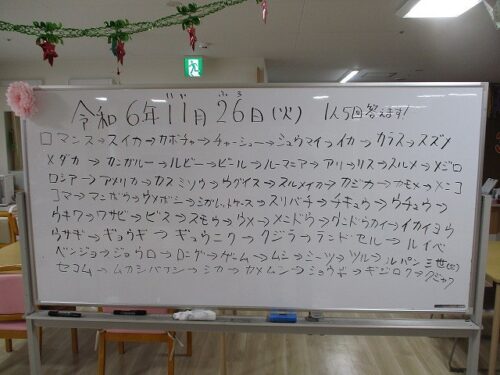 令和6年11月26日(火) 1人5回答えます!
ロマンス→スイカ→カボチャ→チャーシュー→シュウマイ→イカ→カラス→スズメ
メダカ→カンガルー→ルビー→ビール→ルーマニア→アリ→リス→スルメ→メジロ
ロシアー→アメリカ→カス ミソウ→ウグイス→スルメイカ→カミカ→カモメ→メンコ
コマ→マンガ→ウメボシ→→スリバチ→チキュウ→ウチュウ→
ウキワ→ワサビ→ビス→スモウ→ウメ→メンドウ→ウンドウカイ→イカイヨウ
ウサギ→ギョウギ→ギュウニク→クジラ→ランドセル→ルイベ
ベンジョ→ジョウロ→ロング→ゲーム→ムシ→シーツ→ツル→ルパン三世
セコム→ムカシバナシ→ミカ→カメムシ→ショウギ→ギジロク→